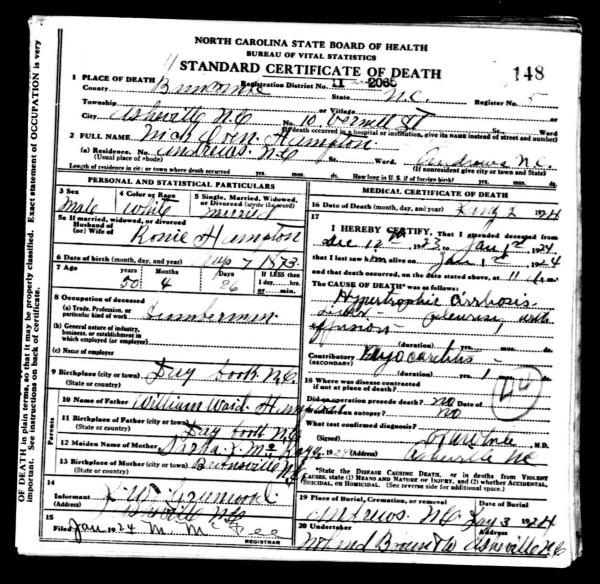 NORTH CAROLINA STATE BOARD OF HEALTH
BUREAU OF VITAL STATISTICS
STANDARD CERTIFICATE OF DEATH
148
1 PLACE OF DEATH
Registration District No. 11 2065
County Buncombe State N.C. Register No. 5
Township or Village
City Asheville N.C. No. 10 St. Ward
(If death occurred in a hospital or institution, give its NAME instead of street and number)
2 FULL NAME Hampton
(a) Residence. No. Andrews N.C. St. Ward. Andrews N.C.
(Usual place of abode) (If nonresident give city or town and State)
Length of residence in city or town where death occurred yrs. mos. ds. How long in U.S. if of foreign birth? yrs. mos. ds.
PERSONAL AND STATISTICAL PARTICULARS
3 Sex 4 Color or Race 5 Single, Married, Widowed, or Divorced (write the word)
Male White Married
5a If married, widowed, or divorced
Husband of
(or) Wife of Hampton
6 Date of birth (month, day, and year) 7 1873
7 Age years Months Days If LESS than
1 day, hrs.
or min.
50 4 26
8 Occupation of deceased
(a) Trade, Profession, or
particular kind of work Lumberman
(b) General nature of industry,
business, or establishment in
which employed (or employer)
(c) Name of employer
9 Birthplace (city or town) N.C.
(State or country)
Parents
10 Name of Father William Hampton
11 Birthplace of Father (city or town) N.C.
(State or country)
12 Maiden Name of Mother
13 Birthplace of Mother (city or town) Burnsville N.C.
(State or country)
14
Informant
(Address) Asheville N.C.
15
Filed Jan 1924 M.
REGISTRAR
MEDICAL CERTIFICATE OF DEATH
16 Date of Death (month, day, and year) 2 1924
17
I HEREBY CERTIFY, That I attended deceased from
Dec 1923, to Jan 1st 1924
that I last saw him alive on Jan 1st 1924
and that death occurred, on the date stated above, at 11 m.
The CAUSE OF DEATH* was as follows:
Hypertrophic Cirrhosis
pleurisy, with
effusion
(duration) yrs. mos. ds.
Contributory Myocarditis
(SECONDARY)
(duration) yrs. 1 mos. ds.
18 Where was disease contracted
if not at place of death?
Did an operation precede death? no Date of
Was there an autopsy? no
What test confirmed diagnosis?
(Signed) M.D.
Asheville NC
*State the DISEASE CAUSING DEATH, or in deaths from VIOLENT
CAUSES, state (1) MEANS AND NATURE OF INJURY, and (2) whether ACCIDENTAL,
SUICIDAL, OR HOMICIDAL. (See reverse side for additional space.)
19 Place of Burial, Cremation, or removal Date of Burial
Andrews. N.C. 3 1924
20 Undertaker Address
Noland Brown & Co Asheville N.C.
OF DEATH in plain terms, so that it may be properly classified. Exact statement of OCCUPATION is very
important. See instructions on back of certificate.